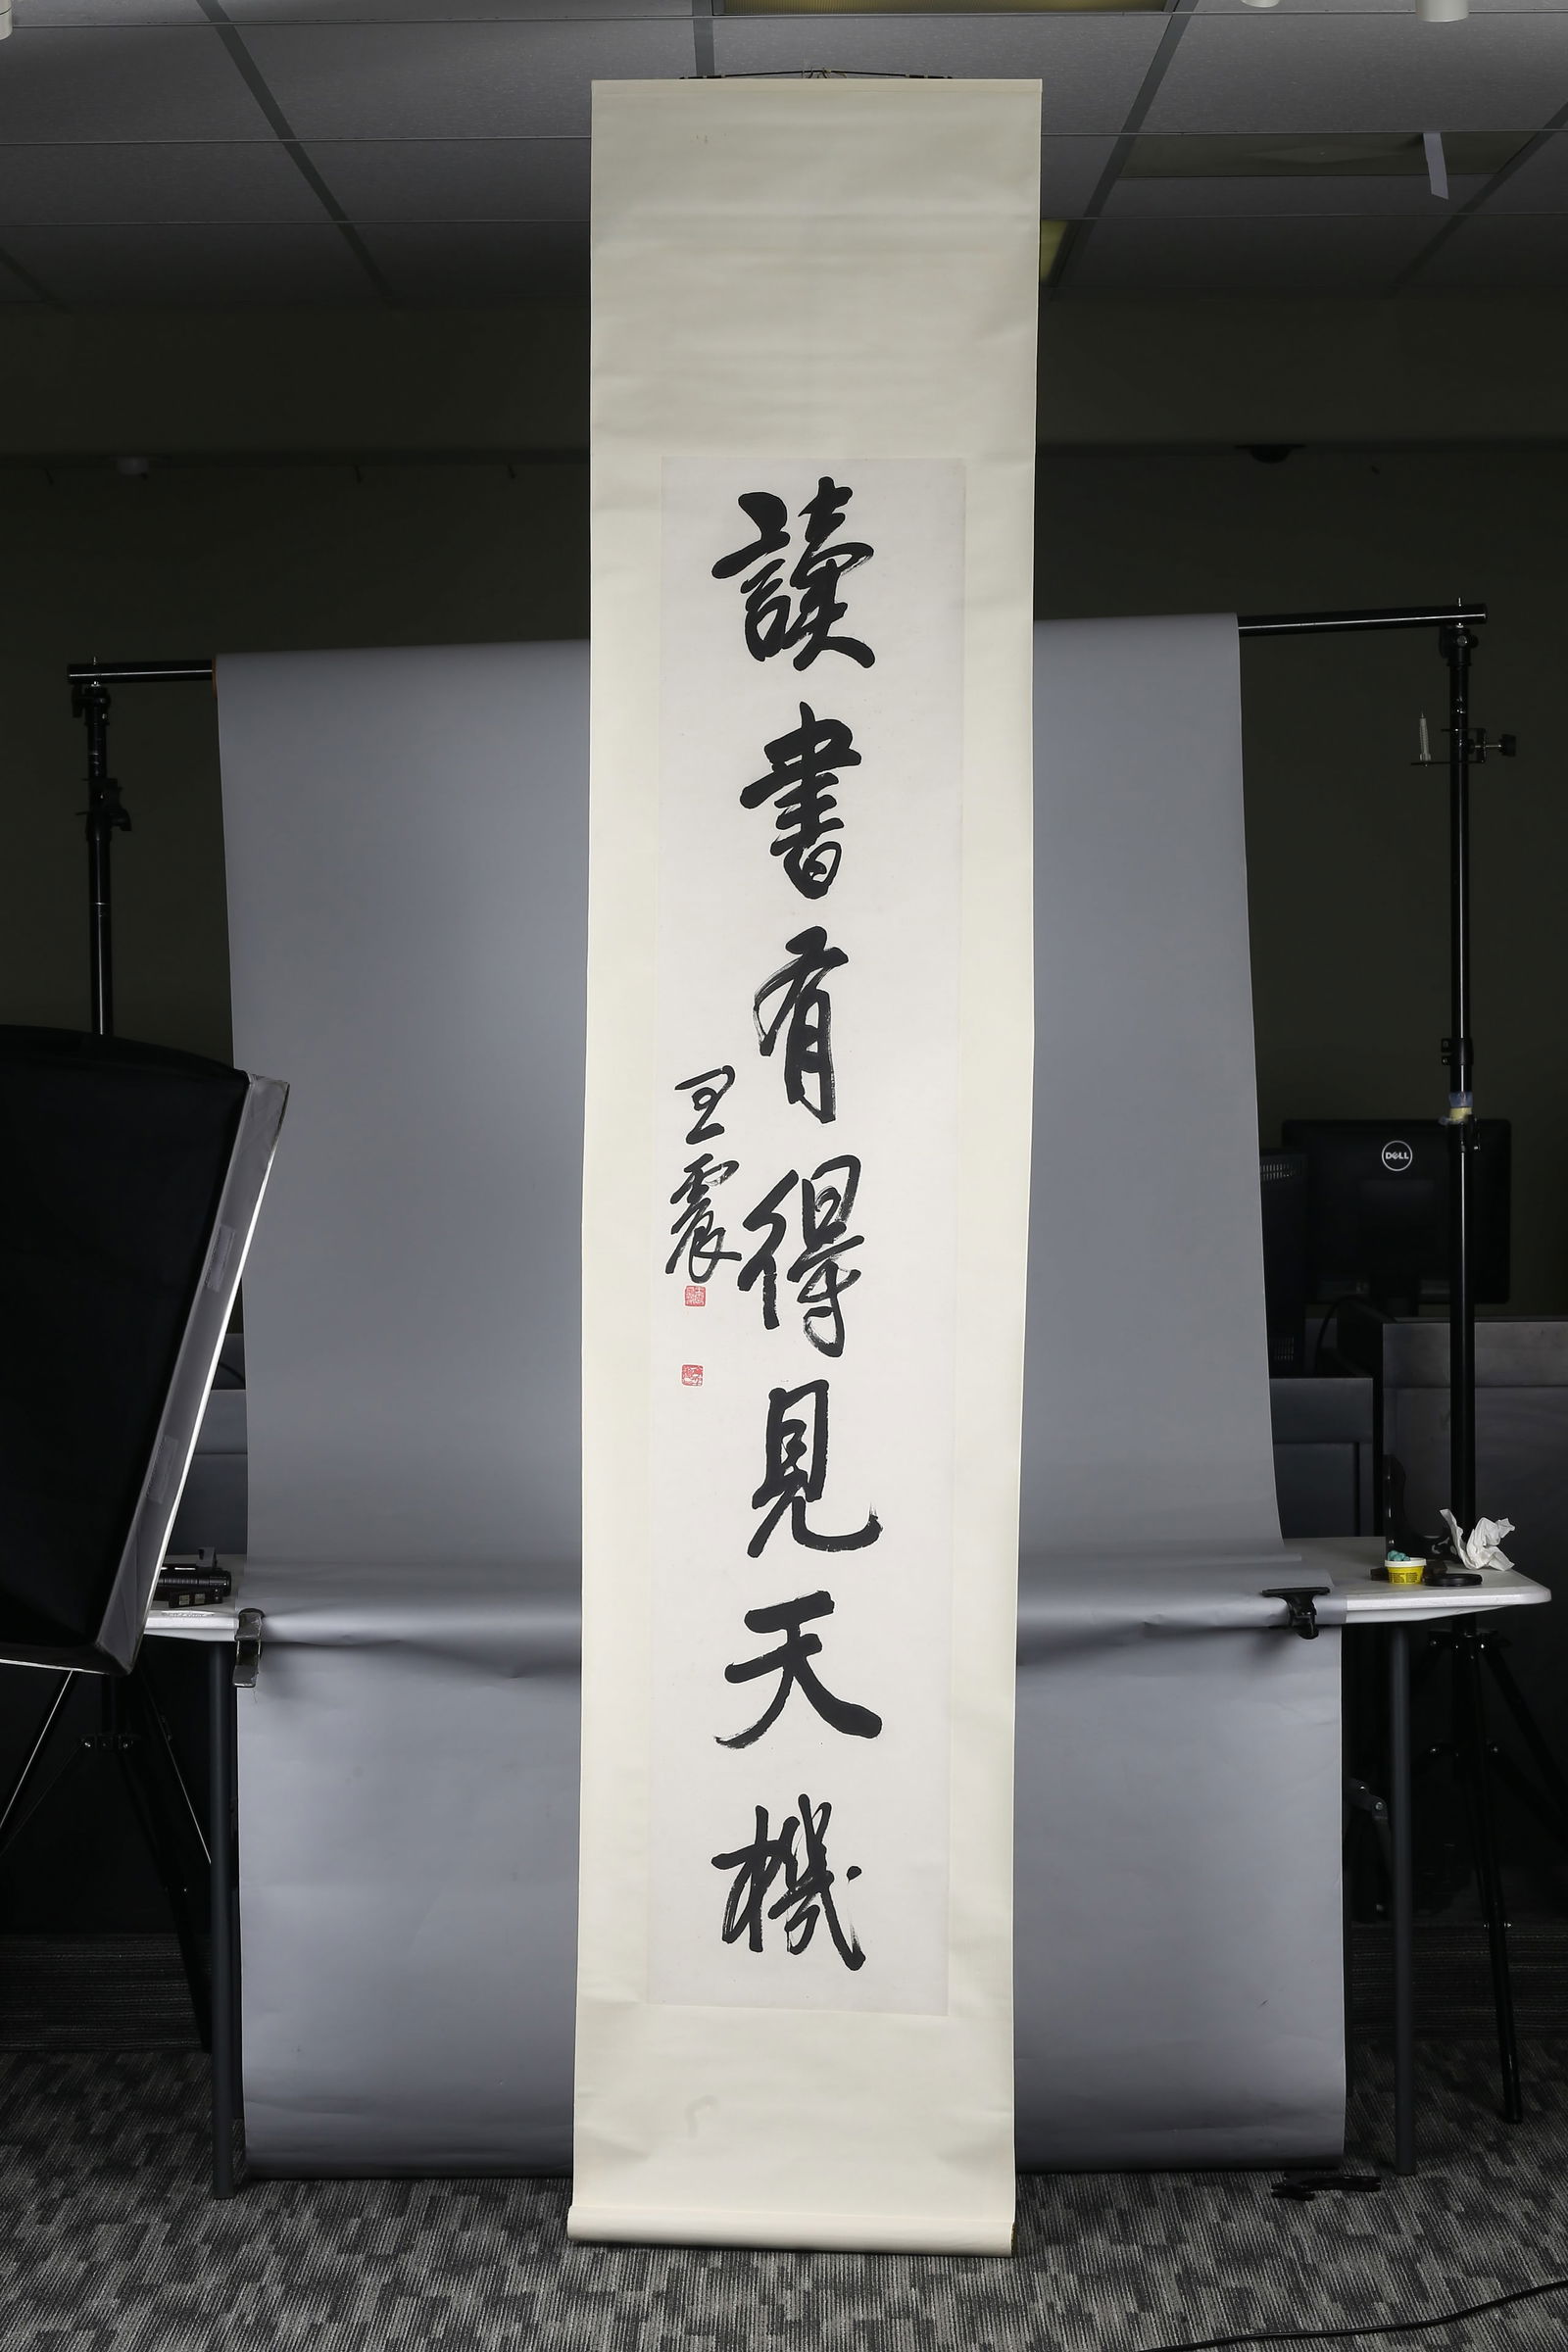 讀書有得見天機
王震
DELL